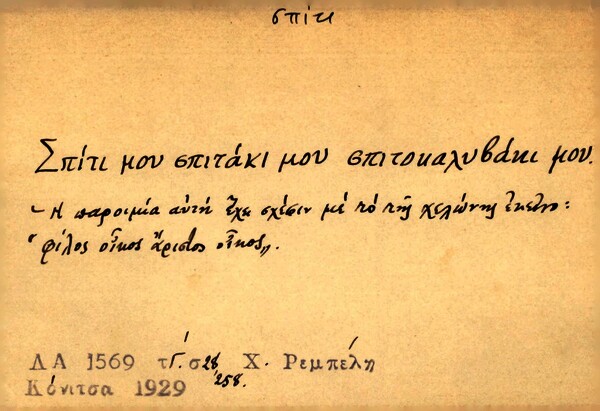 σπίτι
Σπίτι μου σπιτάκι μου σπιτοκαλυβάκι μου.
– Η παροιμία αὐτή ἔχει σχέσιν μέ τό τῆς χελώνης ἐκεῖνο:
"φίλος οἶκος ἄριστος οἶκος".
ΛΑ 1569 τΓ΄. σ 28 Χ. Ρεμπέλη
Κόνιτσα 1929 258.